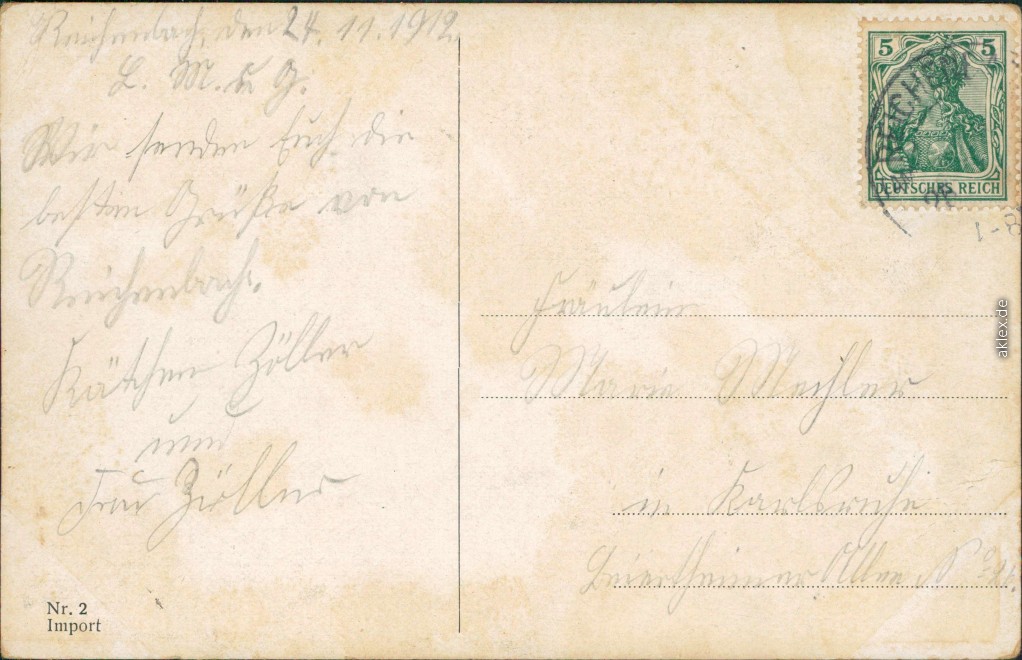 Reichenbach, den 24. 11. 1912.
L. M. u G.
Wir senden Euch die
besten Grüße von
Reichenbach.
Kätchen Zöller
und
Frau Zöller
Nr. 2
Import
5 5
DEUTSCHES REICH
1-8
Fräulein
Marie Mechler
in Karlsruhe
Beiertheimer Allee N°
aklex.de